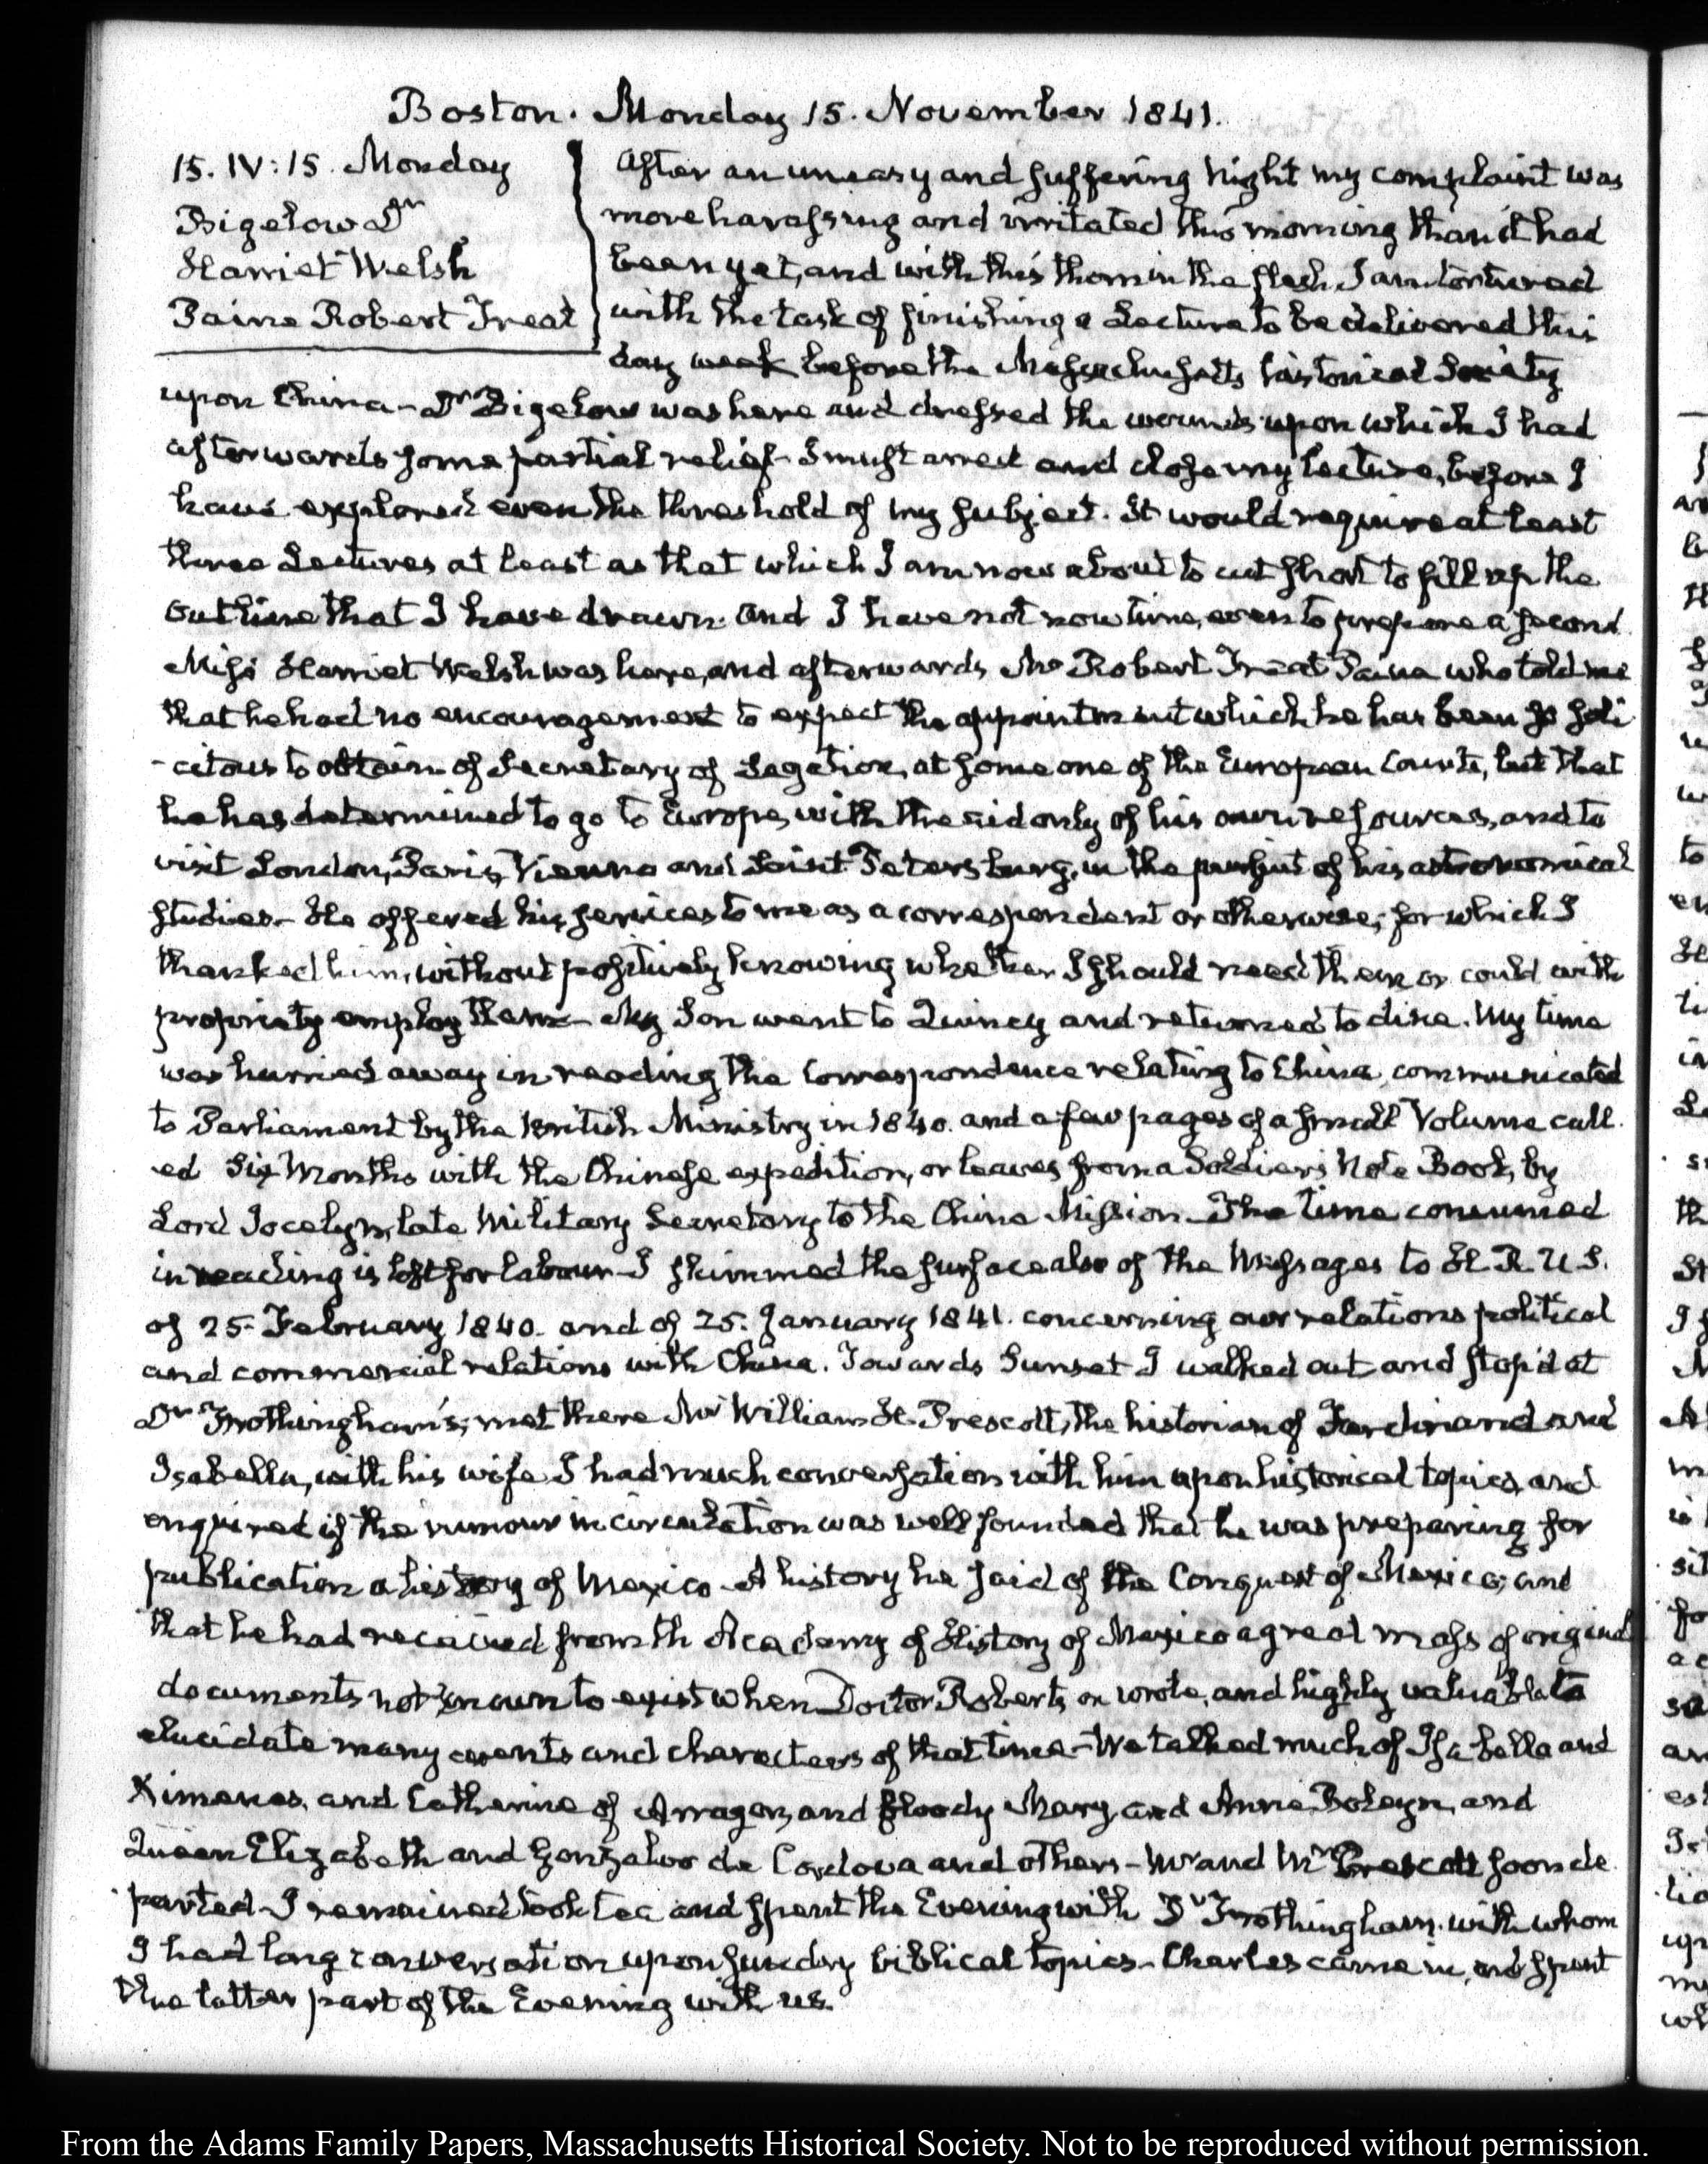 Boston. Monday 15. November 1841.
15. IV:15. Monday
Bigelow Dr
Harriet Welsh
Paine Robert Treat
After an uneasy and suffering Night my complaint was
more harassing and irritated this morning than it had
been yet, and with this thorn in the flesh I am tortured
with the task of finishing a Lecture to be delivered this
day week before the Massachusetts historical Society
upon China - Dr Bigelow was here and dressed the wounds upon which I had
afterwards some partial relief - I must arrest and close my lecture, before I
have explored even the threshold of my subject. It would require at least
three Lectures at least as that which I am now about to cut short to fill up the
outline that I have drawn. And I have not now time, even to prepare a second.
Miss Harriet Welsh was here, and afterwards Mr Robert Treat Paine who told me
that he had no encouragement to expect the appointment which he has been so soli
-citous to obtain of Secretary of Legation, at some one of the European Courts, but that
he has determined to go to Europe, with the aid only of his own resources, and to
visit London, Paris, Vienna and Saint Petersburg, in the pursuit of his astronomical
studies - He offered his services to me as a correspondent or otherwise; for which I
thanked him, without positively knowing whether I should need them or could with
propriety employ them - My Son went to Quincy and returned to dine. My time
was hurried away in reading the Correspondence relating to China, communicated
to Parliament by the British Ministry in 1840. and a few pages of a small Volume call
-ed Six Months with the Chinese expedition, or leaves from a Soldier's Note Book, by
Lord Jocelyn, late Military Secretary to the China Mission - The time consumed
in reading is lost for labour - I skimmed the surface also of the Messages to H. R. U. S.
of 25. February 1840. and of 25. January 1841. concerning our relations political
and commercial relations with China. Towards Sunset I walked out and stop'd at
Dr Frothingham's; met there Mr William H. Prescott, the historian of Ferdinand and
Isabella, with his wife. I had much conversation with him upon historical topics, and
enquired if the rumour in circulation was well founded that he was preparing for
publication a history of Mexico - A history he said of the Conquest of Mexico; and
that he had received from th Academy of History of Mexico a great mass of original
documents not known to exist when Doctor Robertson wrote, and highly valuable to
elucidate many events and characters of that time - We talked much of Isabella and
Ximenes, and Catherine of Arragon, and bloody Mary, and Anne Boleyn, and
Queen Elizabeth and Gonzalvo de Cordova and others - Mr and Mrs Prescott soon de
-parted - I remained took tea and spent the Evening with Dr Frothingham, with whom
I had long conversation upon sundry biblical topics - Charles came in, and spent
the latter part of the Evening with us.
From the Adams Family Papers, Massachusetts Historical Society. Not to be reproduced without permission.